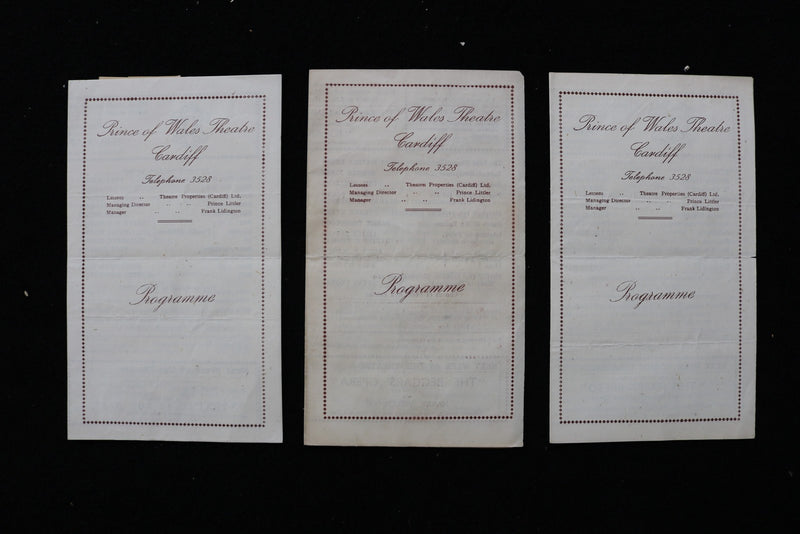 Prince of Wales Theatre
Cardiff
Telephone 3528
Lessees ,, Theatre Properties (Cardiff) Ltd.
Managing Director ,, ,, Prince Littler
Manager ,, ,, Frank Lidington
Programme
Prince of Wales Theatre
Cardiff
Telephone 3528
Lessees ,, Theatre Properties (Cardiff) Ltd.
Managing Director ,, ,, Prince Littler
Manager ,, ,, Frank Lidington
Programme
THE BEGGARS OPERA
Prince of Wales Theatre
Cardiff
Telephone 3528
Lessees ,, Theatre Properties (Cardiff) Ltd.
Managing Director ,, ,, Prince Littler
Manager ,, ,, Frank Lidington
Programme